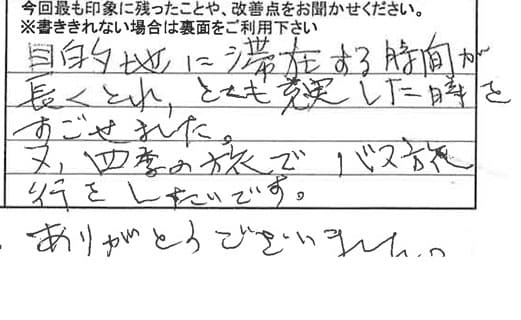 今回最も印象に残ったことや、改善点をお聞かせください。
※書ききれない場合は裏面をご利用下さい
目的地に滞在する時間が
長くとれ,とても充実した時を
すごせました。
又、四季の旅でバス旅
行をしたいです。
ありがとうございました。